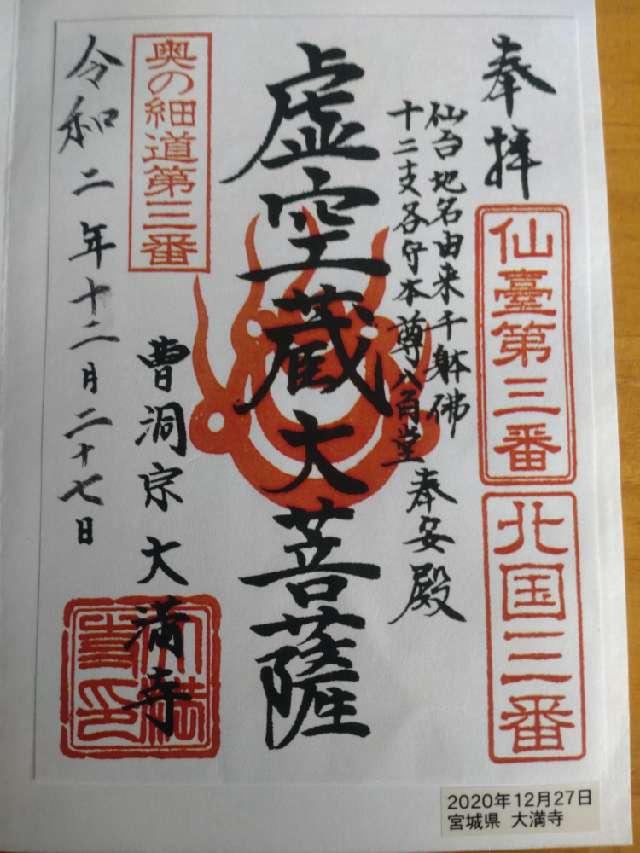 奉拝
仙臺第三番
北国三番
仙台地名由来千躰佛
十二支各守本尊八角堂 奉安殿
虚空蔵大菩薩
奥の細道第三番
曹洞宗大満寺
令和二年十二月二十七日
2020年12月27日
宮城県 大満寺